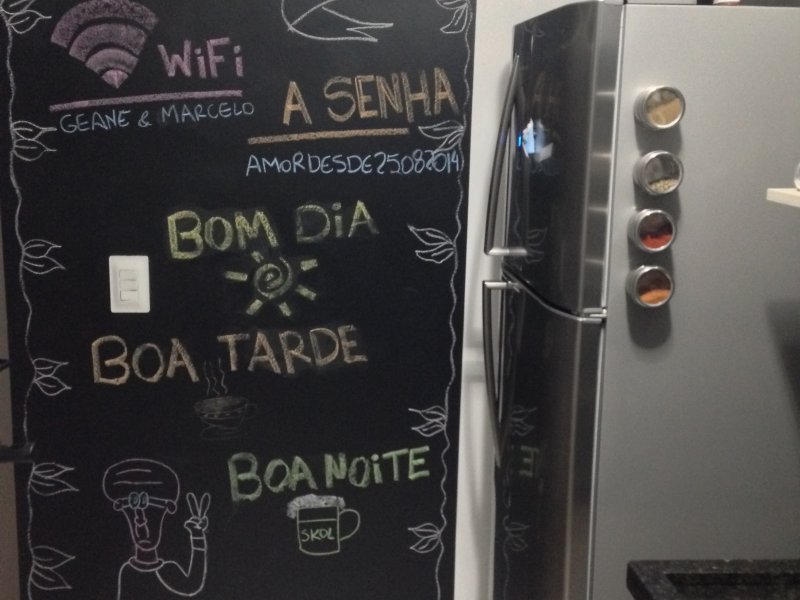 WiFi
GEANE & MARCELO
A SENHA
AMORDESDE25082014
BOM DiA
BOA TARDE
BOA NOiTE
SKOL